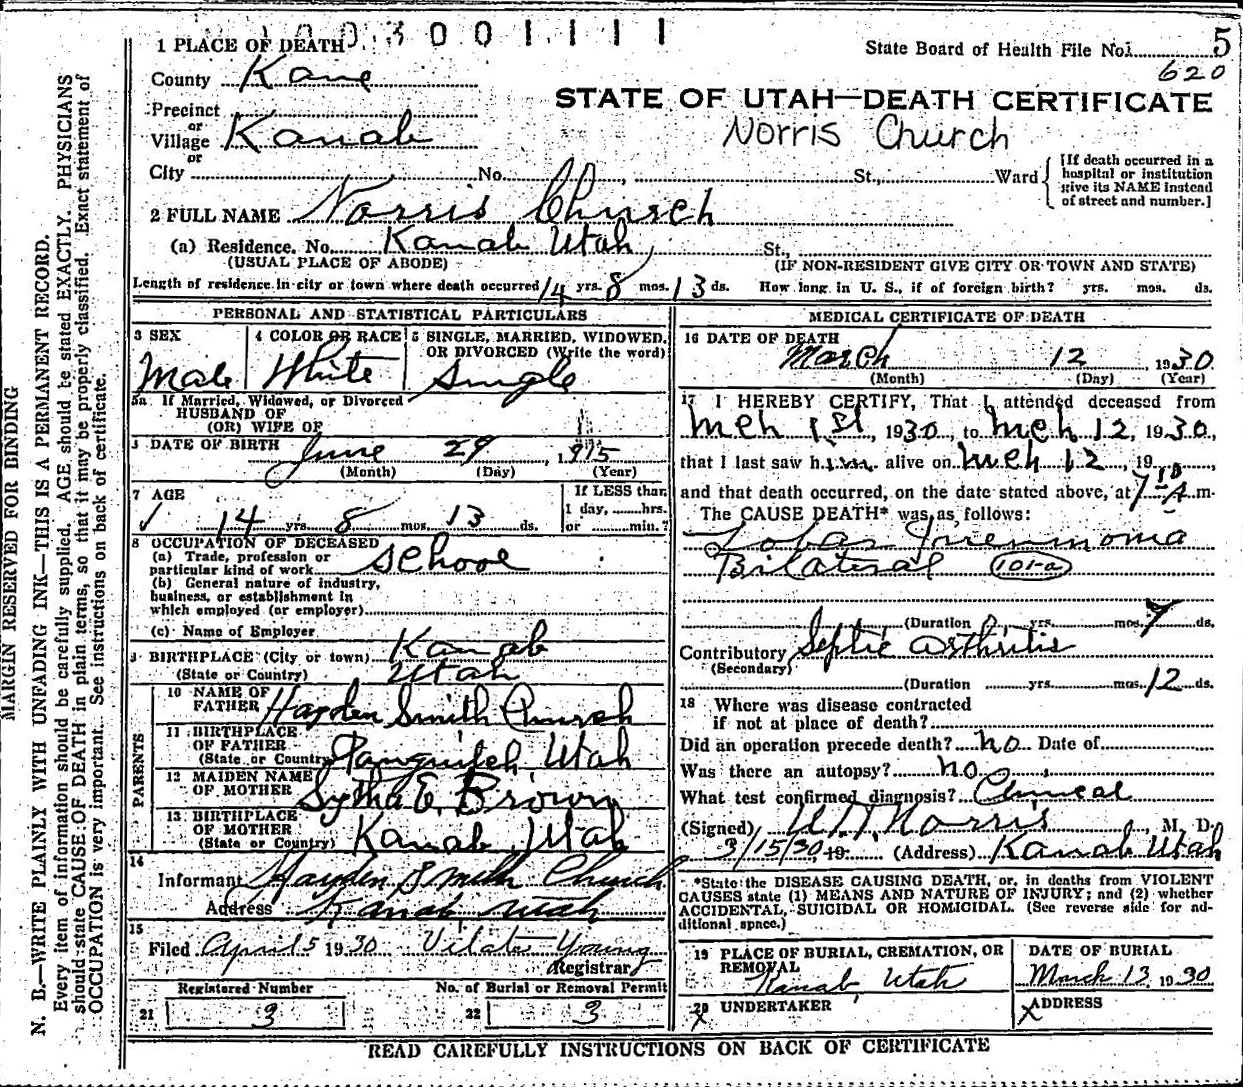 003001111
1 PLACE OF DEATH
State Board of Health File No. 5
County Kane
620
STATE OF UTAH—DEATH CERTIFICATE
Precinct
or
Village Kanab
Norris Church
or
City No. St., Ward
[If death occurred in a
hospital or institution
give its NAME instead
of street and number.]
2 FULL NAME Norris Church
(a) Residence. No. Kanab Utah St.,
(USUAL PLACE OF ABODE) (IF NON-RESIDENT GIVE CITY OR TOWN AND STATE)
Length of residence in city or town where death occurred 14 yrs. 8 mos. 13 ds. How long in U. S., if of foreign birth? yrs. mos. ds.
PERSONAL AND STATISTICAL PARTICULARS
3 SEX 4 COLOR OR RACE 5 SINGLE, MARRIED, WIDOWED,
OR DIVORCED (Write the word)
Male White Single
5a If Married, Widowed, or Divorced
HUSBAND OF
(OR) WIFE OF
DATE OF BIRTH June 29, 1915
(Month) (Day) (Year)
7 AGE If LESS than
1 day, hrs.
14 yrs. 8 mos. 13 ds. or min.?
8 OCCUPATION OF DECEASED
(a) Trade, profession or
particular kind of work School
(b) General nature of industry,
business, or establishment in
which employed (or employer)
(c) Name of Employer
9 BIRTHPLACE (City or town) Kanab
(State or Country) Utah
PARENTS
10 NAME OF
FATHER Hayden Smith Church
11 BIRTHPLACE
OF FATHER
(State or Country) Panguitch Utah
12 MAIDEN NAME
OF MOTHER Sytha E. Brown
13 BIRTHPLACE
OF MOTHER
(State or Country) Kanab, Utah
14
Informant Hayden Smith Church
Address Kanab Utah
15
Filed April 5 1930 Vilate Young
Registrar
Registered Number No. of Burial or Removal Permit
21 3 22 3
MEDICAL CERTIFICATE OF DEATH
16 DATE OF DEATH
March 12 1930
(Month) (Day) (Year)
17 I HEREBY CERTIFY, That I attended deceased from
Mch 1st, 1930, to Mch 12, 1930,
that I last saw him alive on Mch 12, 19
and that death occurred, on the date stated above, at 7 10 A m.
The CAUSE DEATH* was as follows:
Lobar Pneumonia
Bilateral 101-a
(Duration yrs. mos. 7 ds.
Contributory Septic arthritis
(Secondary)
(Duration yrs. mos. 12 ds.
18 Where was disease contracted
if not at place of death?
Did an operation precede death? no Date of
Was there an autopsy? no
What test confirmed diagnosis? Clinical
(Signed) Norris, M. D.
3/15/30, 19 (Address) Kanab Utah
*State the DISEASE CAUSING DEATH, or, in deaths from VIOLENT
CAUSES state (1) MEANS AND NATURE OF INJURY; and (2) whether
ACCIDENTAL, SUICIDAL OR HOMICIDAL. (See reverse side for ad-
ditional space.)
19 PLACE OF BURIAL, CREMATION, OR
REMOVAL
Kanab, Utah
DATE OF BURIAL
March 13 1930
20 UNDERTAKER
X
ADDRESS
X
READ CAREFULLY INSTRUCTIONS ON BACK OF CERTIFICATE
MARGIN RESERVED FOR BINDING
N. B.—WRITE PLAINLY WITH UNFADING INK—THIS IS A PERMANENT RECORD.
Every item of information should be carefully supplied. AGE should be stated EXACTLY. PHYSICIANS
should state CAUSE OF DEATH in plain terms, so that it may be properly classified. Exact statement of
OCCUPATION is very important. See instructions on back of certificate.